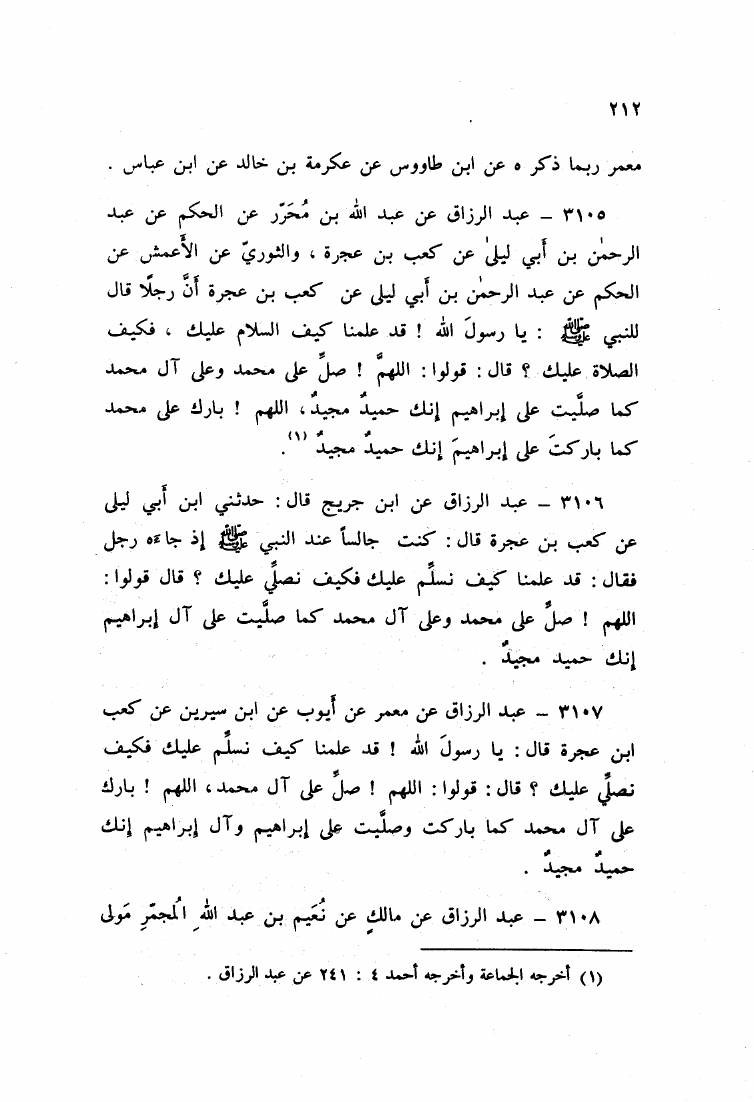 ٢١٢
معمر ربما ذكر ه عن ابن طاووس عن عكرمة بن خالد عن ابن عباس .
٣١٠٥ – عبد الرزاق عن عبد الله بن مُحَرَّر عن الحكم عن عبد
الرحمٰن بن أَبي ليلىٰ عن كعب بن عجرة ، والثوريّ عن الأَعمش عن
الحكم عن عبد الرحمٰن بن أَبي ليلى عن كعب بن عجرة أَنَّ رجلًا قال
للنبي ﷺ : يا رسولَ الله ! قد علمنا كيف السلام عليك ، فكيف
الصلاة عليك ؟ قال : قولوا : اللهمَّ ! صلِّ على محمد وعلى آل محمد
كما صلَّيت على إبراهيم إنك حميدٌ مجيدٌ ، اللهم ! بارك على محمد
كما باركتَ على إبراهيمَ إنك حميدٌ مجيدٌ (١) .
٣١٠٦ – عبد الرزاق عن ابن جريج قال : حدثني ابن أَبي ليلى
عن كعب بن عجرة قال : كنت جالساً عند النبي ﷺ إذ جاءه رجل
فقال : قد علمنا كيف نسلِّم عليك فكيف نصلِّي عليك ؟ قال قولوا :
اللهم ! صلِّ على محمد وعلى آل محمد كما صلَّيت على آل إبراهيم
إنك حميد مجيدٌ .
٣١٠٧ – عبد الرزاق عن معمر عن أَيوب عن ابن سيرين عن كعب
ابن عجرة قال : يا رسولَ الله ! قد علمنا كيف نسلِّم عليك فكيف
نصلِّي عليك ؟ قال : قولوا : اللهم ! صلِّ على آل محمد ، اللهم ! بارك
على آل محمد كما باركت وصلَّيت على إبراهيم وآل إبراهيم إنك
حميدٌ مجيدٌ .
٣١٠٨ – عبد الرزاق عن مالكٍ عن نُعَيم بن عبد اللهِ المُجمّرِ مَولى
(١) أخرجه الجماعة وأخرجه أحمد ٤ : ٢٤١ عن عبد الرزاق .